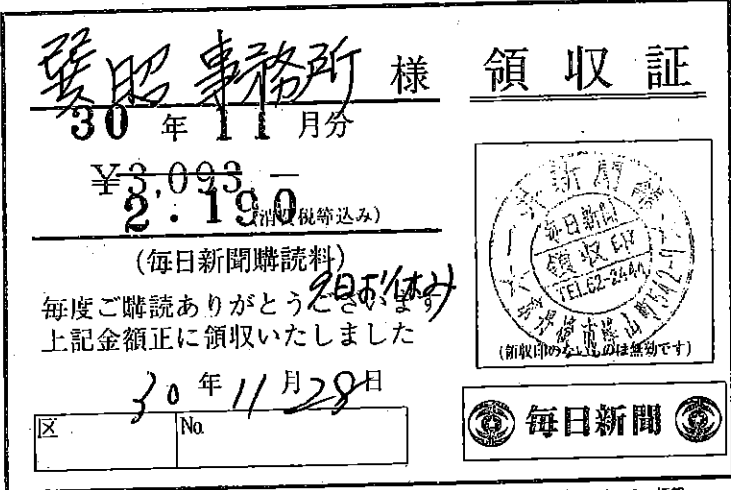 巽昭事務所 様 領収証
30年11月分
¥3,093.—
2.190 (消費税等込み)
(毎日新聞購読料)
毎度ご購読ありがとうございます
上記金額正に領収いたしました
30年11月28日
区 No.
毎日新聞
領収印
TEL.62-2444
(領収印のないものは無効です)
毎日新聞